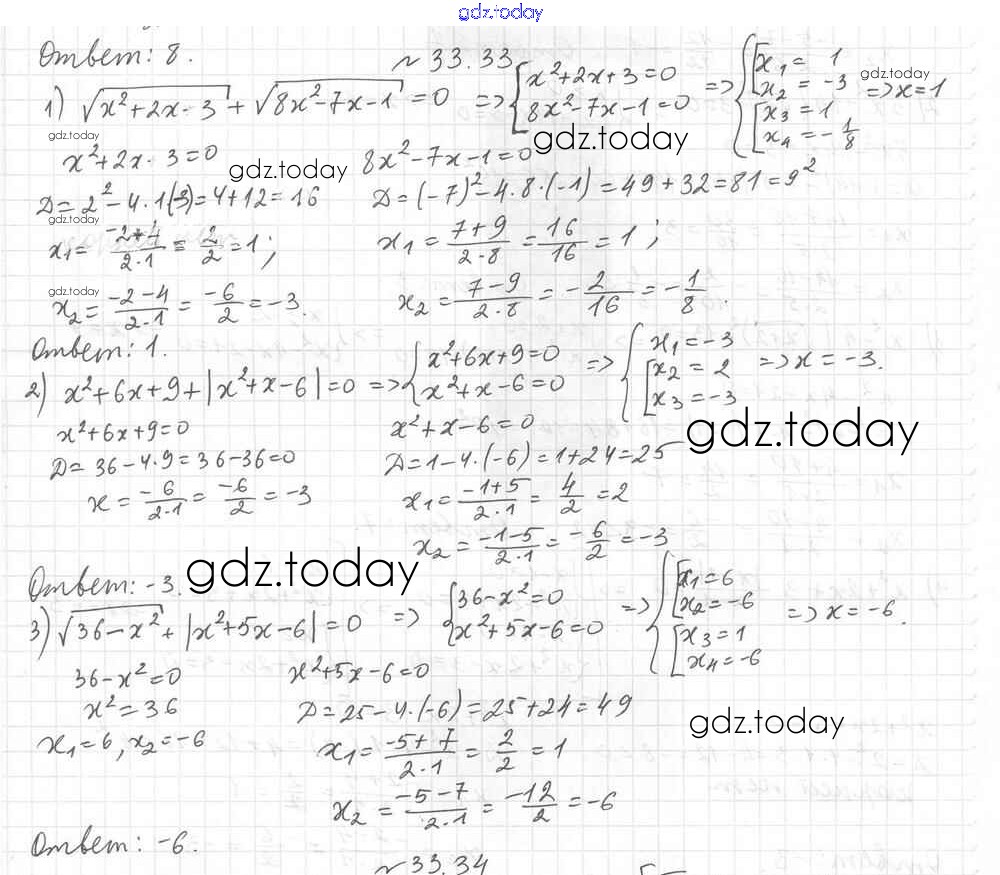 gdz.today
Ответ: 8.
№ 33.33
1) √(x²+2x-3) + √(8x²-7x-1) = 0 => { x²+2x+3=0 ; 8x²-7x-1=0 => { [ x₁ = 1 ; x₂ = -3 ; [ x₃ = 1 ; x₄ = -1/8 => x=1
gdz.today
gdz.today
gdz.today
x²+2x-3=0    8x²-7x-1=0
gdz.today
Д = 2²-4·1(-3)=4+12=16    Д = (-7)²-4·8·(-1) = 49+32=81=9²
gdz.today
x₁ = (-2+4)/(2·1) = 2/2 = 1;    x₁ = (7+9)/(2·8) = 16/16 = 1;
gdz.today
x₂ = (-2-4)/(2·1) = -6/2 = -3.    x₂ = (7-9)/(2·8) = -2/16 = -1/8.
Ответ: 1.
2) x²+6x+9+|x²+x-6|=0 => { x²+6x+9=0 ; x²+x-6=0 => { x₁=-3 ; [ x₂ = 2 ; x₃ = -3 => x = -3.
x²+6x+9=0    x²+x-6=0
gdz.today
Д = 36-4·9=36-36=0    Д=1-4·(-6)=1+24=25
x = -6/(2·1) = -6/2 = -3    x₁ = (-1+5)/(2·1) = 4/2 = 2
x₂ = (-1-5)/(2·1) = -6/2 = -3
Ответ: -3.
gdz.today
3) √(36-x²) + |x²+5x-6| = 0 => { 36-x²=0 ; x²+5x-6=0 => { [ x₁=6 ; x₂=-6 ; [ x₃=1 ; x₄=-6 => x=-6.
36-x²=0    x²+5x-6=0
x²=36    Д=25-4·(-6)=25+24=49
gdz.today
x₁=6, x₂=-6    x₁ = (-5+7)/(2·1) = 2/2 = 1
x₂ = (-5-7)/(2·1) = -12/2 = -6
Ответ: -6.
№ 33.34